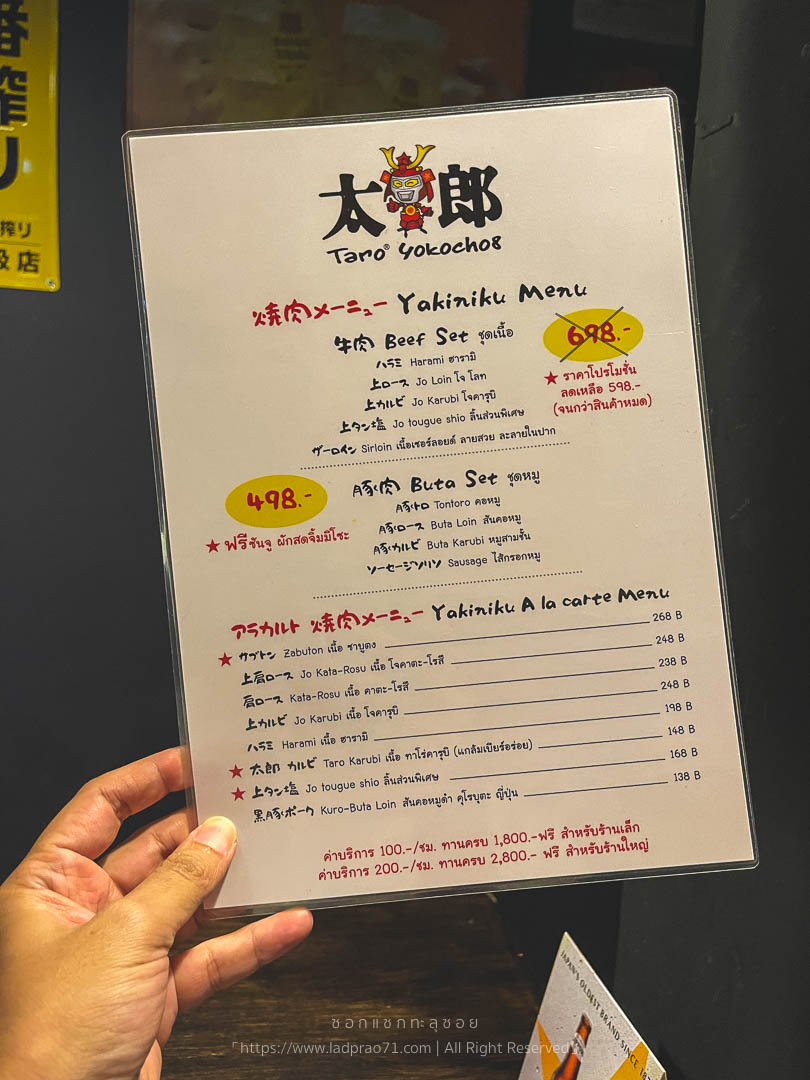 番
搾
り
搾り
扱店
太郎
Taro® Yokocho8
焼肉メーニュー Yakiniku Menu
牛肉 Beef Set ชุดเนื้อ
698.-
ハラミ Harami ฮารามิ
上ロース Jo Loin โจ โลท
上カルビ Jo Karubi โจคารูบิ
上タン塩 Jo tougue shio ลิ้นส่วนพิเศษ
ザーロイン Sirloin เนื้อเซอร์ลอยด์ ลายสวย ละลายในปาก
★ ราคาโปรโมชั่น
ลดเหลือ 598.-
(จนกว่าสินค้าหมด)
498.-
★ ฟรีซันจู ผักสดจิ้มมิโซะ
豚肉 Buta Set ชุดหมู
豚トロ Tontoro คอหมู
豚ロース Buta Loin สันคอหมู
豚カルビ Buta Karubi หมูสามชั้น
ソーセージソリソ Sausage ไส้กรอกหมู
アラカルト 焼肉メーニュー Yakiniku A la carte Menu
★ サブトン Zabuton เนื้อ ซาบูตง 268 B
上肩ロース Jo Kata-Rosu เนื้อ โจคาตะ-โรสึ 248 B
肩ロース Kata-Rosu เนื้อ คาตะ-โรสึ 238 B
上カルビ Jo Karubi เนื้อ โจคารุบิ 248 B
ハラミ Harami เนื้อ ฮารามิ 198 B
★ 太郎 カルビ Taro Karubi เนื้อ ทาโร่คารุบิ (แกล้มเบียร์อร่อย) 148 B
★ 上タン塩 Jo tougue shio ลิ้นส่วนพิเศษ 168 B
黒豚ポーク Kuro-Buta Loin สันคอหมูดำ คุโรบุตะ ญี่ปุ่น 138 B
ค่าบริการ 100.-/ชม. ทานครบ 1,800.-ฟรี สำหรับร้านเล็ก
ค่าบริการ 200.-/ชม. ทานครบ 2,800.- ฟรี สำหรับร้านใหญ่
JAPAN'S OLDEST BRAND SINCE 18
ซอกแซกทะลุซอย
https://www.ladprao71.com | All Right Reserved